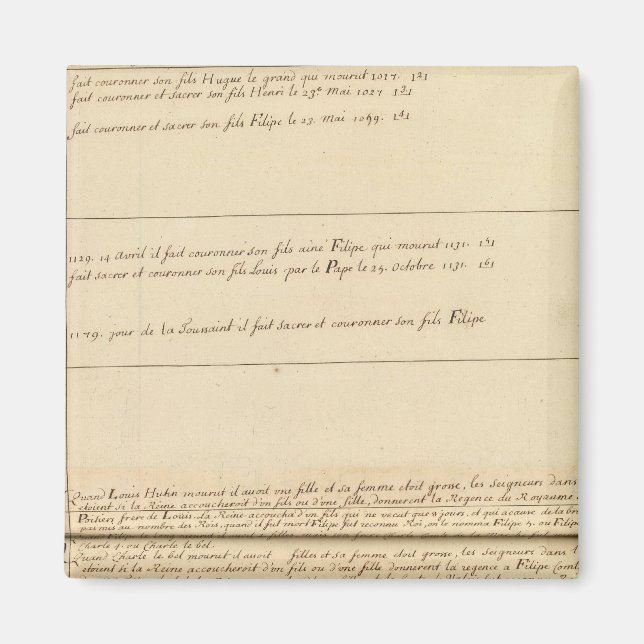 fait couronner son fils Hugue le grand qui mourut 1017. |2|
fait couronner et sacrer son fils Henri le 23e Mai 1027 |3|
fait couronner et sacrer son fils Filipe le 23. Mai 1059. |4|
1129. 14 Avril il fait couronner son fils aîné Filipe qui mourut 1131. |5|
fait sacrer et couronner son fils Louis par le Pape le 25. Octobre 1131. |6|
1179. jour de la Toussaint il fait sacrer et couronner son fils Filipe
Quand Louis Hutin mourut il avoit une fille et sa femme etoit grosse, les Seigneurs dans
etoient si la Reine accoucheroit d'un fils ou d'une fille, donnerent la Regence du Royaume
Poitiers frere de Louis. La Reine accoucha d'un fils qui ne vecut que 8 jours, et qui a cause de la
pas mis au nombre des Rois, quand il fut mort Filipe fut reconnu Roi, on le nomma Filipe 5. ou Filipe
Charle 4. ou Charle le bel.
Quand Charle le bel mourut il avoit filles et sa femme etoit grosse, les Seigneurs dans
etoient si la Reine accoucheroit d'un fils ou d'une fille donnerent la regence a Filipe